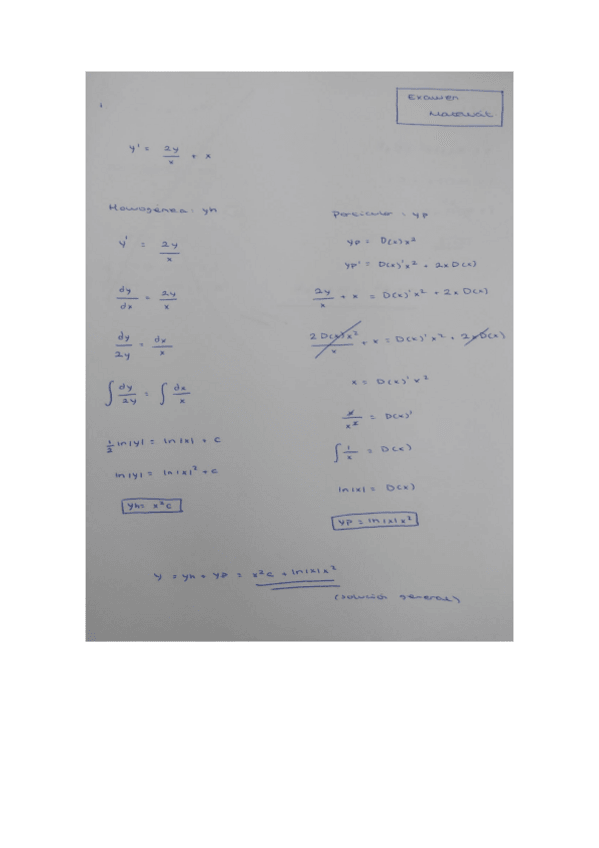 Examen
Matemát
y' = 2y/x + x
Homogénea: yh
y' = 2y/x
dy/dx = 2y/x
dy/2y = dx/x
∫ dy/2y = ∫ dx/x
1/2 ln|y| = ln|x| + C
ln|y| = ln|x|² + C
yh = x²C
Particular: yp
yp = D(x)x²
yp' = D(x)'x² + 2xD(x)
2y/x + x = D(x)'x² + 2xD(x)
2D(x)x²/x + x = D(x)'x² + 2xD(x)
x = D(x)'x²
x/x² = D(x)'
∫ 1/x = D(x)
ln|x| = D(x)
yp = ln|x|x²
y = yh + yp = x²C + ln|x|x²
(solución general)